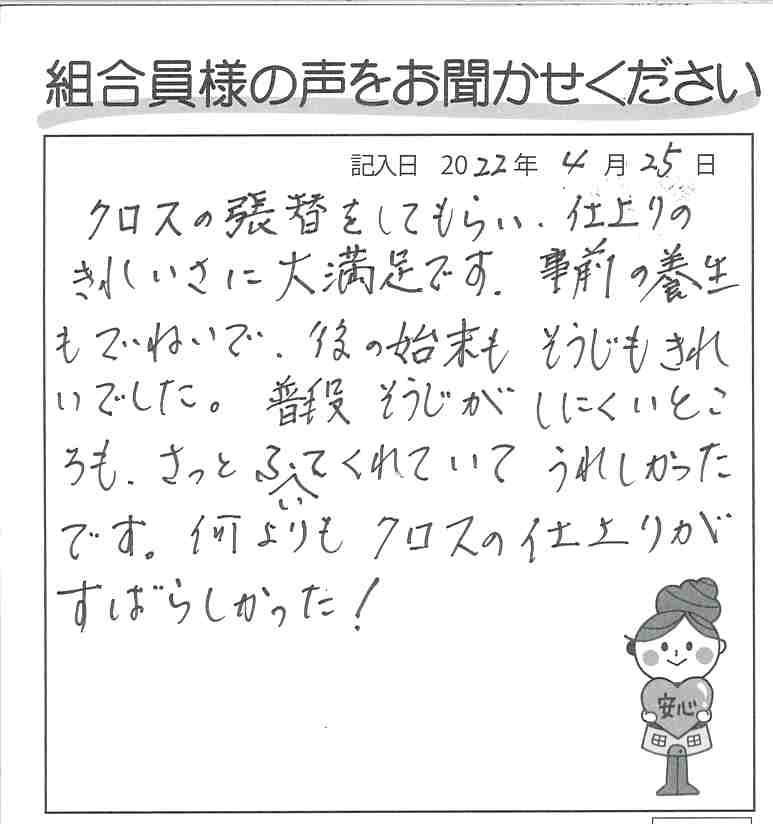 組合員様の声をお聞かせください
記入日 2022年 4月 25日
クロスの張替をしてもらい、仕上りの
きれいさに大満足です。事前の養生
もていねいで、後の始末も そうじもきれ
いでした。普段 そうじが しにくいとこ
ろも、さっと ふいてくれていて うれしかった
です。何よりも クロスの仕上りが
すばらしかった!
安心